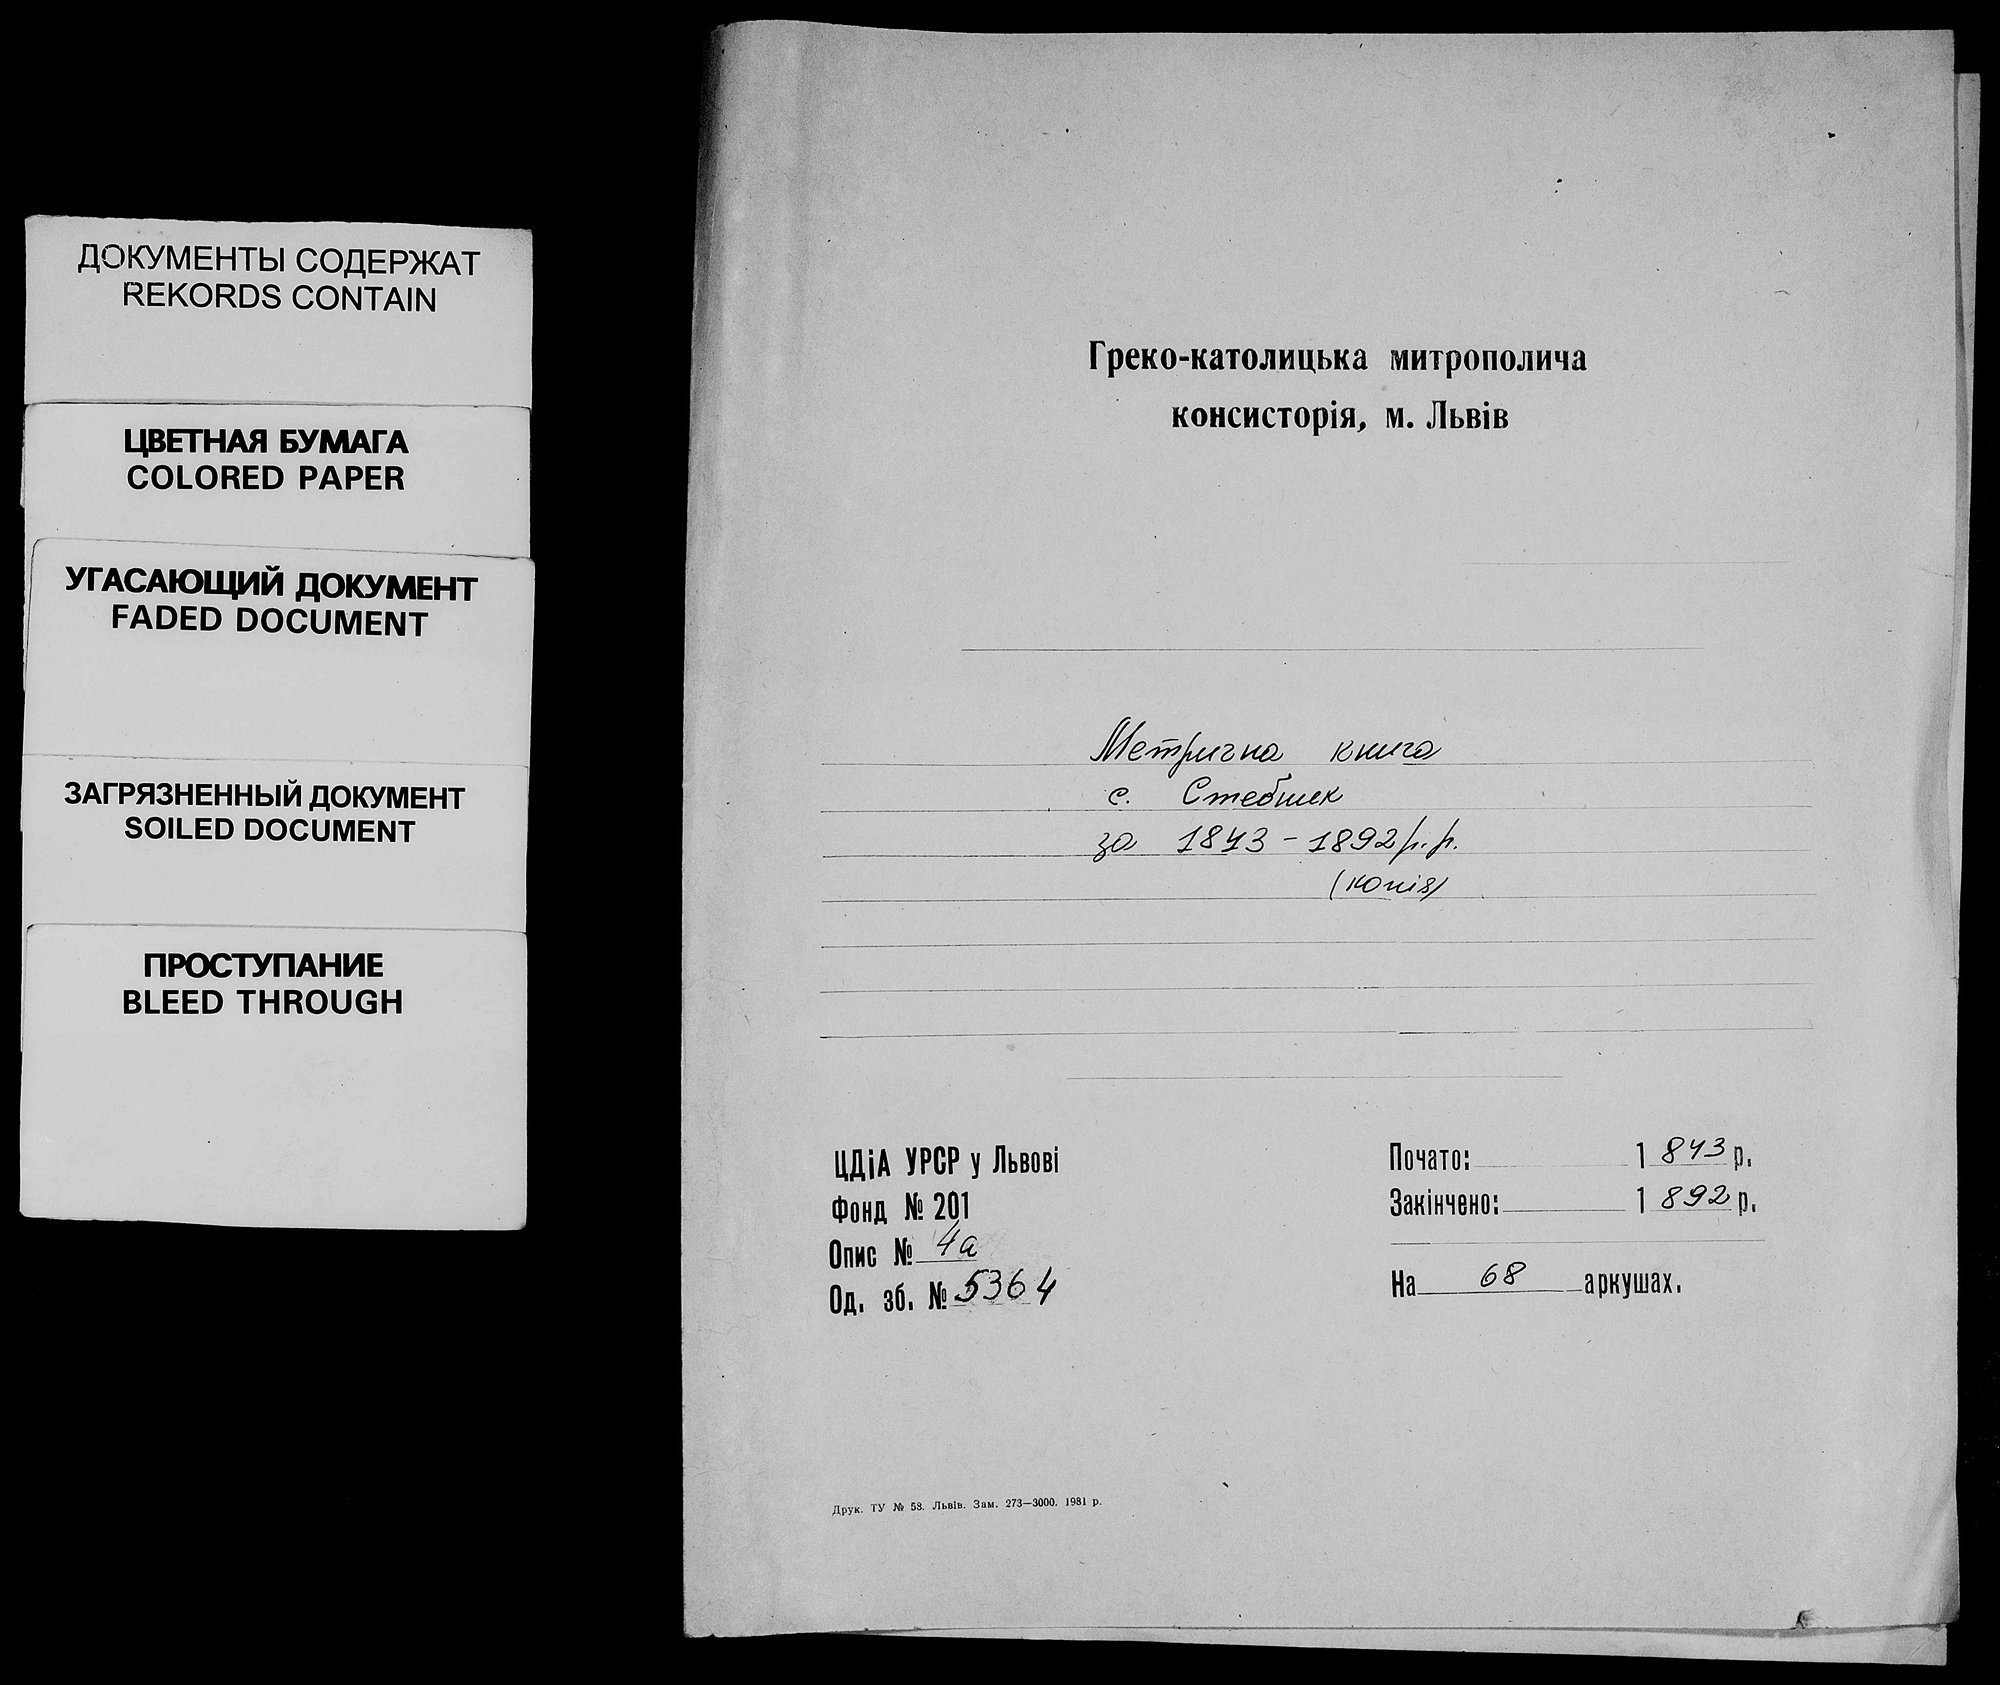 ДОКУМЕНТЫ СОДЕРЖАТ
REKORDS CONTAIN
ЦВЕТНАЯ БУМАГА
COLORED PAPER
УГАСАЮЩИЙ ДОКУМЕНТ
FADED DOCUMENT
ЗАГРЯЗНЕННЫЙ ДОКУМЕНТ
SOILED DOCUMENT
ПРОСТУПАНИЕ
BLEED THROUGH
Греко-католицька митрополича
консисторія, м. Львів
Метрична книга
с. Стебник
за 1843 - 1892 р.р.
(копія)
ЦДіА УРСР у Львові
Фонд № 201
Опис № 4а
Од. зб. № 5364
Почато: 1843 р.
Закінчено: 1892 р.
На 68 аркушах.
Друк. ТУ № 58. Львів. Зам. 273—3000. 1981 р.